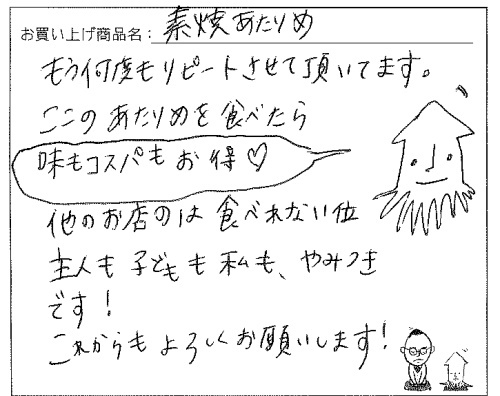 お買い上げ商品名：素焼あたりめ
もう何度もリピートさせて頂いてます。
ここのあたりめを食べたら
味もコスパもお得♡
他のお店のは食べれない位
主人も子どもも私も、やみつき
です！
これからもよろしくお願いします！